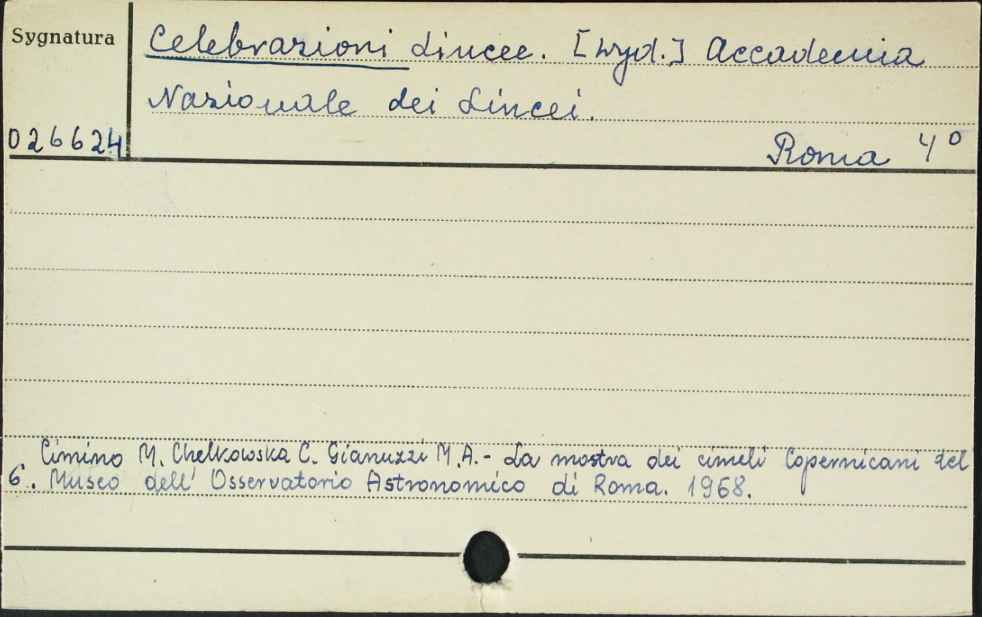 Sygnatura
Celebrazioni Lincee. [Wyd.] Accademia
Nazionale dei Lincei.
026624
Roma 4°
Cimino M. Chelkowska C. Gianuzzi M.A.- La mostra dei cimeli Copernicani del
6. Museo dell' Osservatorio Astronomico di Roma. 1968.